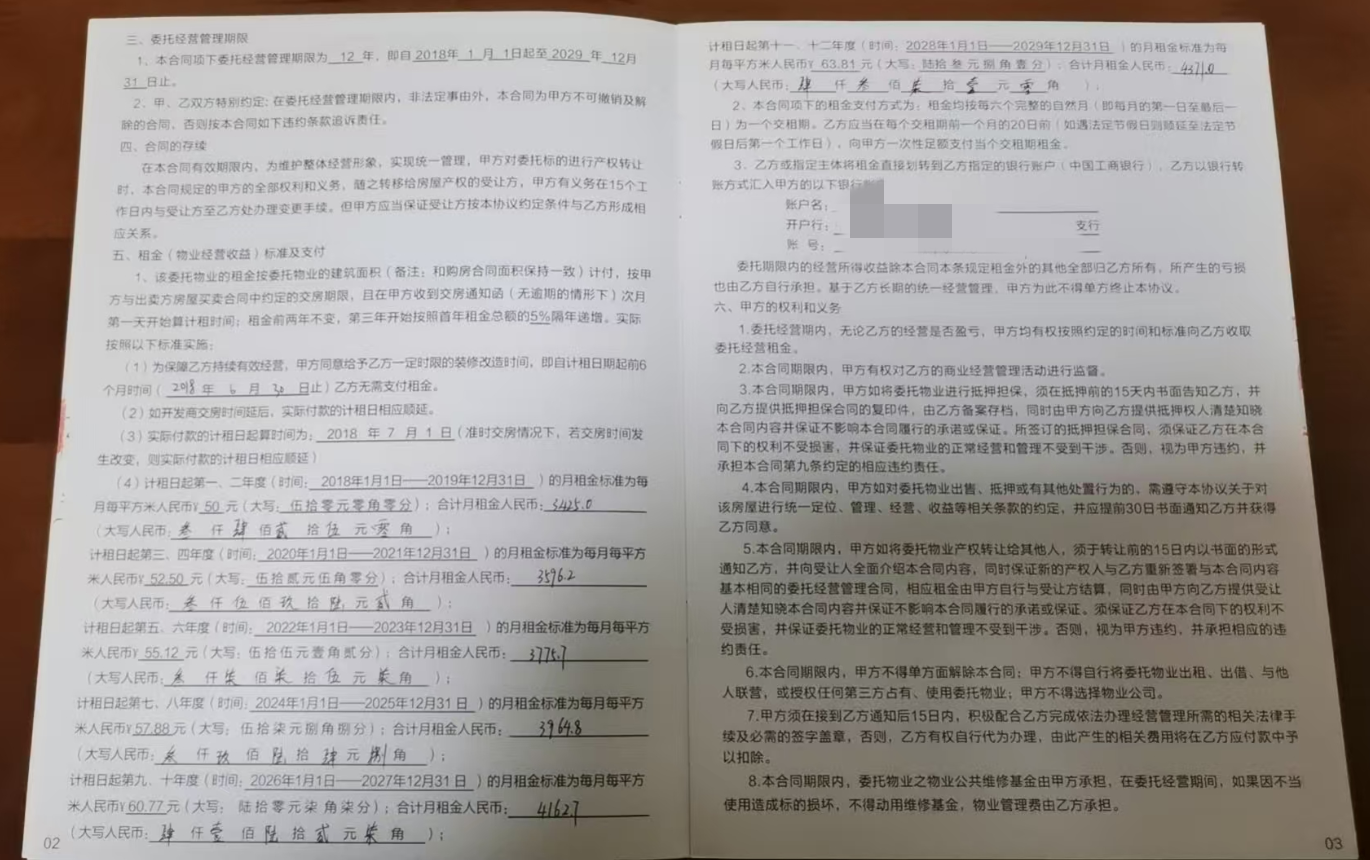 三、委托经营管理期限
1、本合同项下委托经营管理期限为 12 年，即自2018年 1 月 1日起至 2029 年 12月
31 日止。
2、甲、乙双方特别约定：在委托经营管理期限内，非法定事由外，本合同为甲方不可撤销及解
除的合同，否则按本合同如下违约条款追诉责任。
四、合同的存续
在本合同有效期限内，为维护整体经营形象，实现统一管理，甲方对委托标的进行产权转让
时，本合同规定的甲方的全部权利和义务，随之转移给房屋产权的受让方，甲方有义务在15个工
作日内与受让方至乙方处办理变更手续。但甲方应当保证受让方按本协议约定条件与乙方形成相
应关系。
五、租金（物业经营收益）标准及支付
1、该委托物业的租金按委托物业的建筑面积（备注：和购房合同面积保持一致）计付，按甲
方与出卖方房屋买卖合同中约定的交房期限，且在甲方收到交房通知函（无逾期的情形下）次月
第一天开始算计租时间；租金前两年不变，第三年开始按照首年租金总额的5%隔年递增。实际
按照以下标准实施：
（1）为保障乙方持续有效经营，甲方同意给予乙方一定时限的装修改造时间，即自计租日期起前6
个月时间（ 2018 年 6 月 30 日止）乙方无需支付租金。
（2）如开发商交房时间延后，实际付款的计租日相应顺延。
（3）实际付款的计租日起算时间为：2018 年 7 月 1 日（准时交房情况下，若交房时间发
生改变，则实际付款的计租日相应顺延）
（4）计租日起第一、二年度（时间：2018年1月1日——2019年12月31日 ）的月租金标准为每
月每平方米人民币¥ 50 元（大写：伍拾零元零角零分）；合计月租金人民币：3425.0
（大写人民币：叁 仟 肆 佰 贰 拾 伍 元 零 角 ）；
计租日起第三、四年度（时间：2020年1月1日——2021年12月31日 ）的月租金标准为每月每平方
米人民币¥ 52.50 元（大写：伍拾贰元伍角零分）；合计月租金人民币：3596.2
（大写人民币：叁 仟 伍 佰 玖 拾 陆 元 贰 角 ）；
计租日起第五、六年度（时间：2022年1月1日——2023年12月31日 ）的月租金标准为每月每平方
米人民币¥ 55.12 元（大写：伍拾伍元壹角贰分）；合计月租金人民币：3775.7
（大写人民币：叁 仟 柒 佰 柒 拾 伍 元 柒 角 ）；
计租日起第七、八年度（时间：2024年1月1日——2025年12月31 日 ）的月租金标准为每月每平方
米人民币¥57.88 元（大写：伍拾柒元捌角捌分）；合计月租金人民币：3964.8
（大写人民币：叁 仟 玖 佰 陆 拾 肆 元 捌 角 ）；
计租日起第九、十年度（时间：2026年1月1日——2027年12月31 日 ）的月租金标准为每月每平方
米人民币¥ 60.77 元（大写：陆拾零元柒 角柒分）；合计月租金人民币：4162.7
（大写人民币：肆 仟 壹 佰 陆 拾 贰 元 柒 角 ）；
02
计租日起第十一、十二年度（时间：2028年1月1日——2029年12月31日 ）的月租金标准为每
月每平方米人民币¥ 63.81 元（大写：陆拾叁元捌角壹分）；合计月租金人民币：4371.0
（大写人民币：肆 仟 叁 佰 柒 拾 壹 元 零 角 ）；
2、本合同项下的租金支付方式为：租金均按每六个完整的自然月（即每月的第一日至最后一
日）为一个交租期。乙方应当在每个交租期前一个月的20日前（如遇法定节假日则顺延至法定节
假日后第一个工作日），向甲方一次性足额支付当个交租期租金。
3、乙方或指定主体将租金直接划转到乙方指定的银行账户（中国工商银行），乙方以银行转
账方式汇入甲方的以下银行
账户名：
开户行： 支行
账 号：
委托期限内的经营所得收益除本合同本条规定租金外的其他全部归乙方所有，所产生的亏损
也由乙方自行承担。基于乙方长期的统一经营管理，甲方为此不得单方终止本协议。
六、甲方的权利和义务
1.委托经营期内，无论乙方的经营是否盈亏，甲方均有权按照约定的时间和标准向乙方收取
委托经营租金。
2.本合同期限内，甲方有权对乙方的商业经营管理活动进行监督。
3.本合同期限内，甲方如将委托物业进行抵押担保，须在抵押前的15天内书面告知乙方，并
向乙方提供抵押担保合同的复印件，由乙方备案存档，同时由甲方向乙方提供抵押权人清楚知晓
本合同内容并保证不影响本合同履行的承诺或保证。所签订的抵押担保合同，须保证乙方在本合
同下的权利不受损害，并保证委托物业的正常经营和管理不受到干涉。否则，视为甲方违约，并
承担本合同第九条约定的相应违约责任。
4.本合同期限内，甲方如对委托物业出售、抵押或有其他处置行为的，需遵守本协议关于对
该房屋进行统一定位、管理、经营、收益等相关条款的约定，并应提前30日书面通知乙方并获得
乙方同意。
5.本合同期限内，甲方如将委托物业产权转让给其他人，须于转让前的15日内以书面的形式
通知乙方，并向受让人全面介绍本合同内容，同时保证新的产权人与乙方重新签署与本合同内容
基本相同的委托经营管理合同，相应租金由甲方自行与受让方结算，同时由甲方向乙方提供受让
人清楚知晓本合同内容并保证不影响本合同履行的承诺或保证。须保证乙方在本合同下的权利不
受损害，并保证委托物业的正常经营和管理不受到干涉。否则，视为甲方违约，并承担相应的违
约责任。
6.本合同期限内，甲方不得单方面解除本合同；甲方不得自行将委托物业出租、出借、与他
人联营，或授权任何第三方占有、使用委托物业；甲方不得选择物业公司。
7.甲方须在接到乙方通知后15日内，积极配合乙方完成依法办理经营管理所需的相关法律手
续及必需的签字盖章，否则，乙方有权自行代为办理，由此产生的相关费用将在乙方应付款中予
以扣除。
8.本合同期限内，委托物业之物业公共维修基金由甲方承担，在委托经营期间，如果因不当
使用造成标的损坏，不得动用维修基金，物业管理费由乙方承担。
03